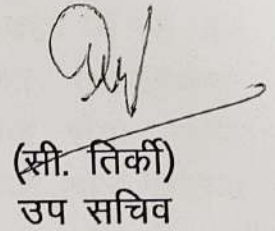 (सी. तिर्की)
उप सचिव